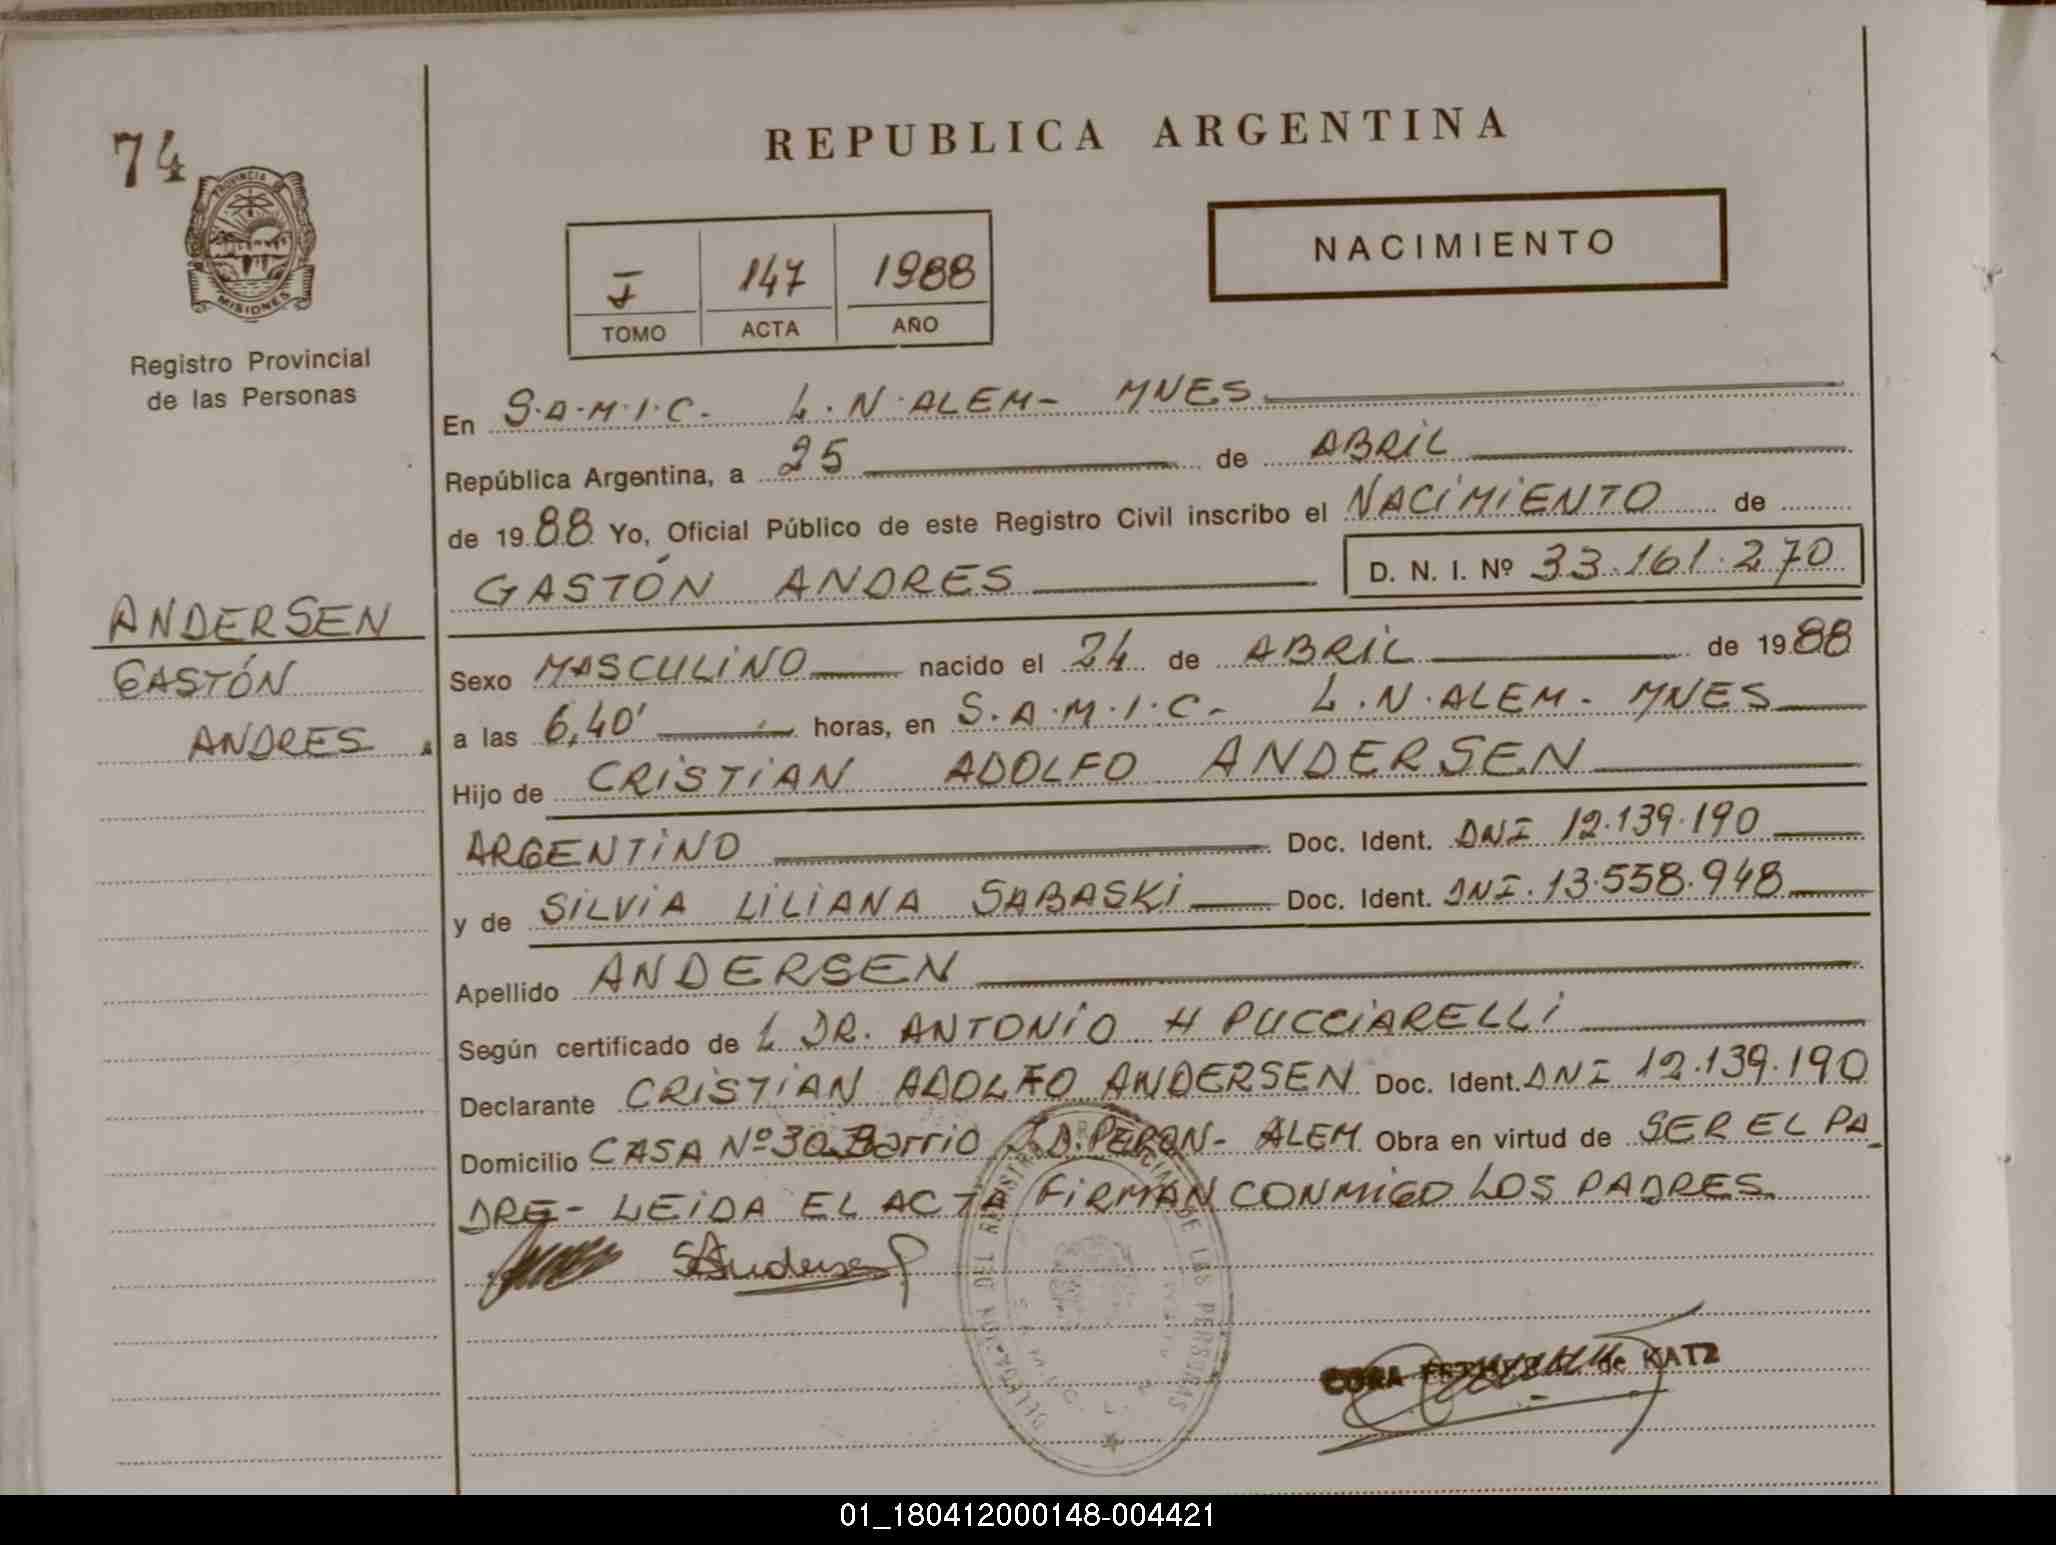 74
PROVINCIA DE
MISIONES
Registro Provincial
de las Personas
ANDERSEN
GASTÓN
ANDRES
REPUBLICA ARGENTINA
I 147 1988
TOMO ACTA AÑO
NACIMIENTO
En S.A.M.I.C. L.N.ALEM- MNES
República Argentina, a 25 de ABRIL
de 1988 Yo, Oficial Público de este Registro Civil inscribo el NACIMIENTO de
GASTÓN ANDRES D. N. I. Nº 33.161.270
Sexo MASCULINO nacido el 24 de ABRIL de 1988
a las 6,40' horas, en S.A.M.I.C. L.N.ALEM- MNES
Hijo de CRISTIAN ADOLFO ANDERSEN
ARGENTINO Doc. Ident. DNI 12.139.190
y de SILVIA LILIANA SABASKI Doc. Ident. DNI. 13.558.948
Apellido ANDERSEN
Según certificado de L DR. ANTONIO H PUCCIARELLI
Declarante CRISTIAN ADOLFO ANDERSEN Doc. Ident. DNI 12.139.190
Domicilio CASA Nº 30 Barrio J.D. PERON- ALEM Obra en virtud de SER EL PA_
DRE- LEIDA EL ACTA FIRMAN CONMIGO LOS PADRES
SAndersen
DEL REGISTRO PROVINCIAL DE LAS PERSONAS
CORA de KATZ
01_180412000148-004421